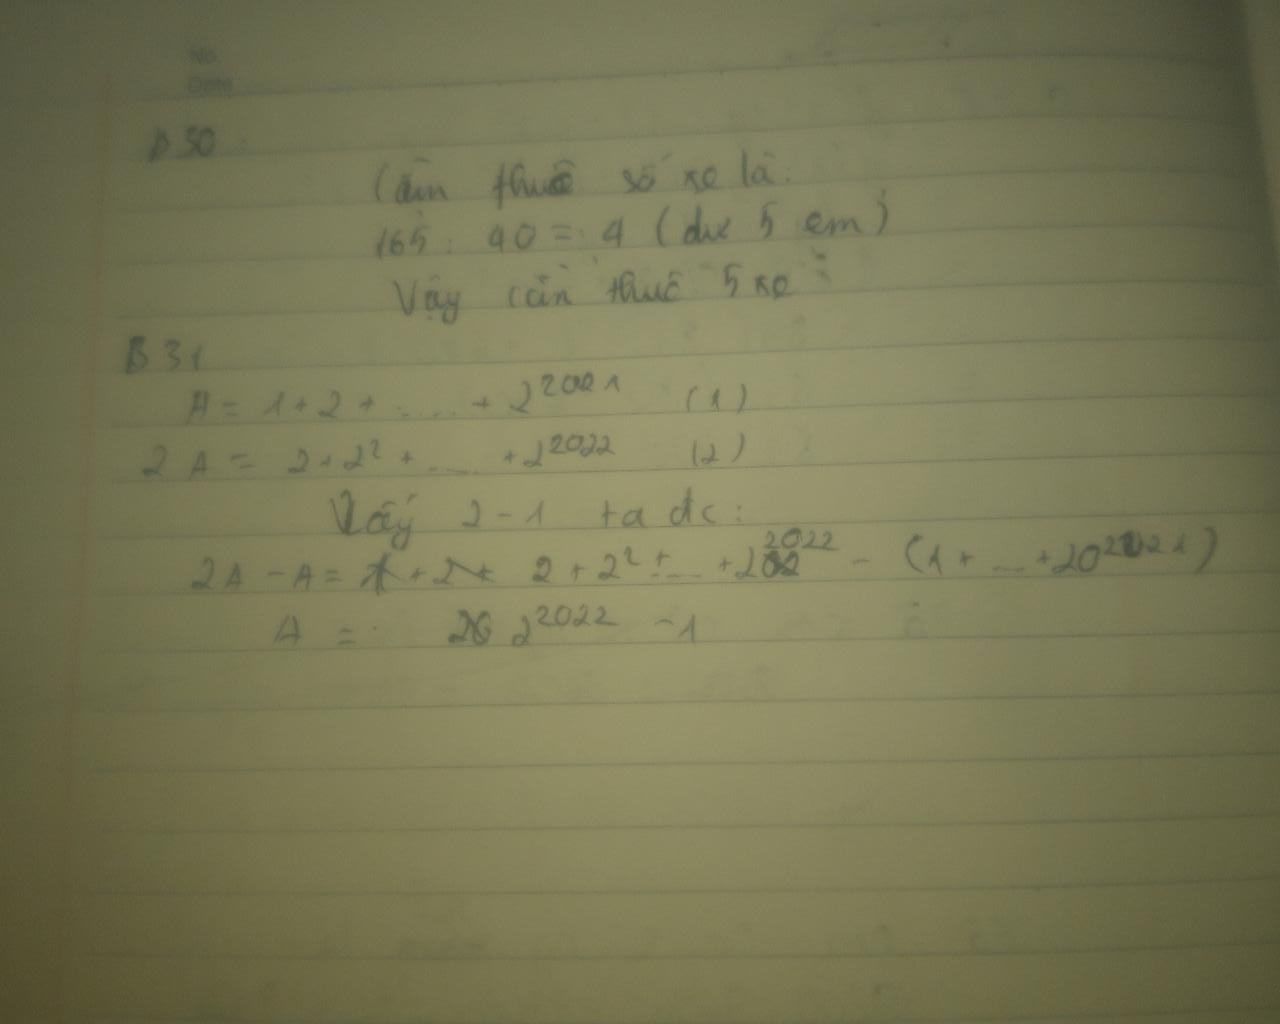 No.
Date
B 30
Cần thuê số xe là:
165 : 40 = 4 (dư 5 em)
Vậy cần thuê 5 xe
B 31
A = 1 + 2 + ..... + 2^2021 (1)
2 A = 2 + 2^2 + ..... + 2^2022 (2)
Lấy 2 - 1 ta đc:
2A - A = 2 + 2^2 + .... + 2^2022 - (1 + ... + 20^2021)
A = 2^2022 - 1